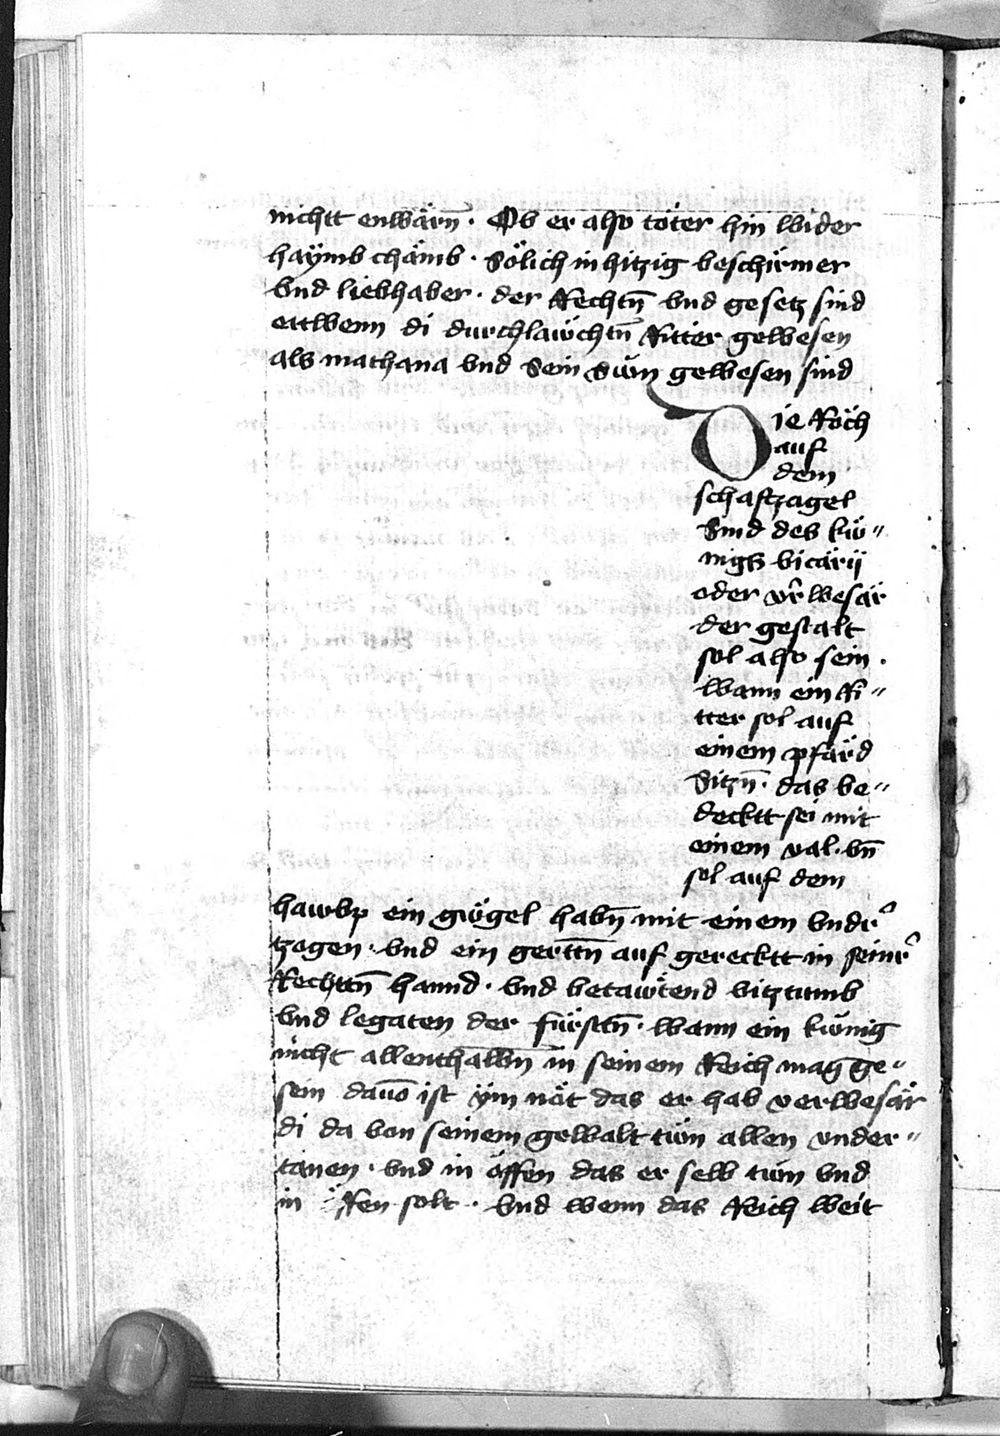 nichtt enwärn̄ · Ob er also töter hin wider
haÿmb chämb · Sölich in hitzig beschirmer
vnd liebhaber · der Rechtn̄ vnd gesetz sind
ettwenn di durchlawchtn̄ Ritter gewesen
als mathana vnd Sein Sün gewesen sind
Die Röch
auf
dem
schafzagel
Sind des kü„
nigs vicarij
oder v̂rwesär
der gestalt
sol also sein ·
wann ein Ri„
tter sol auf
einem pfärd
Sitzn̄ · das be„
decktt sei mit
einem val · vn̄
sol auf dem
hawbp ein gügel habn̄ mit einem vndr̉
tzogen · vnd ein gerttn̄ auf gerecktt in seinr̉
Rechttn̄ hannd · vnd betawtend vitztumb
vnd legaten der fürstn̄ · wann ein künig
nicht allenthalbn̄ in seinem Reich mag ge„
sein dauō ist ÿm nöt das er hab verwesär
di da von seinem gewalt tün allen vnder„
tänen · vnd in öffen das er selb tün vnd
in solt · vnd wenn das Reich weit